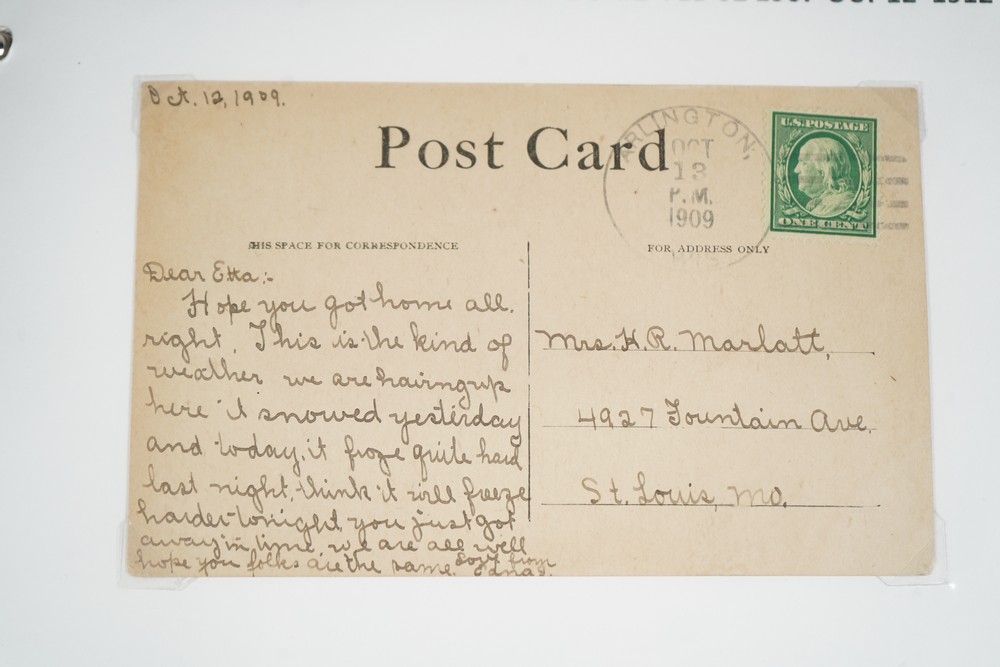 Oct. 12, 1909.
Post Card
ARLINGTON,
OCT
13
P.M.
1909
U.S. POSTAGE
ONE CENT
THIS SPACE FOR CORRESPONDENCE
FOR ADDRESS ONLY
Dear Etta:-
Hope you got home all.
right. This is the kind of
weather we are having up
here it snowed yesterday
and today. it froze quite hard
last night, think it will freeze
harder tonight, you just got
away in time. we are all well
hope you folks are the same. Love from
Edna S.
Mrs. H. R. Marlatt,
4927 Fountain Ave.
St. Louis, Mo.